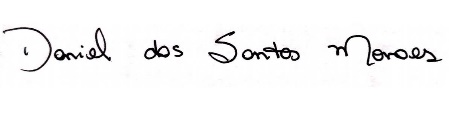 Daniel dos Santos Moraes